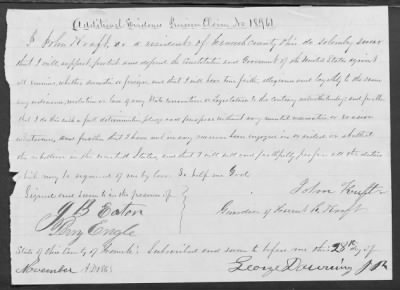 Additional Evidence Pension Claim No 18961
I John Kraft, as a resident of County Ohio do solemnly swear
that I will support protect and defend the Constitution and Government of the United States against
all enemies, whether domestic or foreign and that I will bear true faith, allegiance and loyalty to the same
any ordinance, resolution or law of any State convention or Legislature to the contrary notwithstanding: and further
that I do this with a full determination pledge and purpose without any mental reservation or evasion
whatsoever, and further that I have not in any manner been engaged in or aided or abetted
the rebellion in the United States, and that I will well and faithfully perform all the duties
which may be required of me by law. So help me God
Signed and sworn to in the presence of
J B Eaton
Perry Engle
John Kraft
Guardian of Kraft
State of Ohio County of : Subscribed and sworn to before me this 28th day of
November A.D. 186
George Downing J P